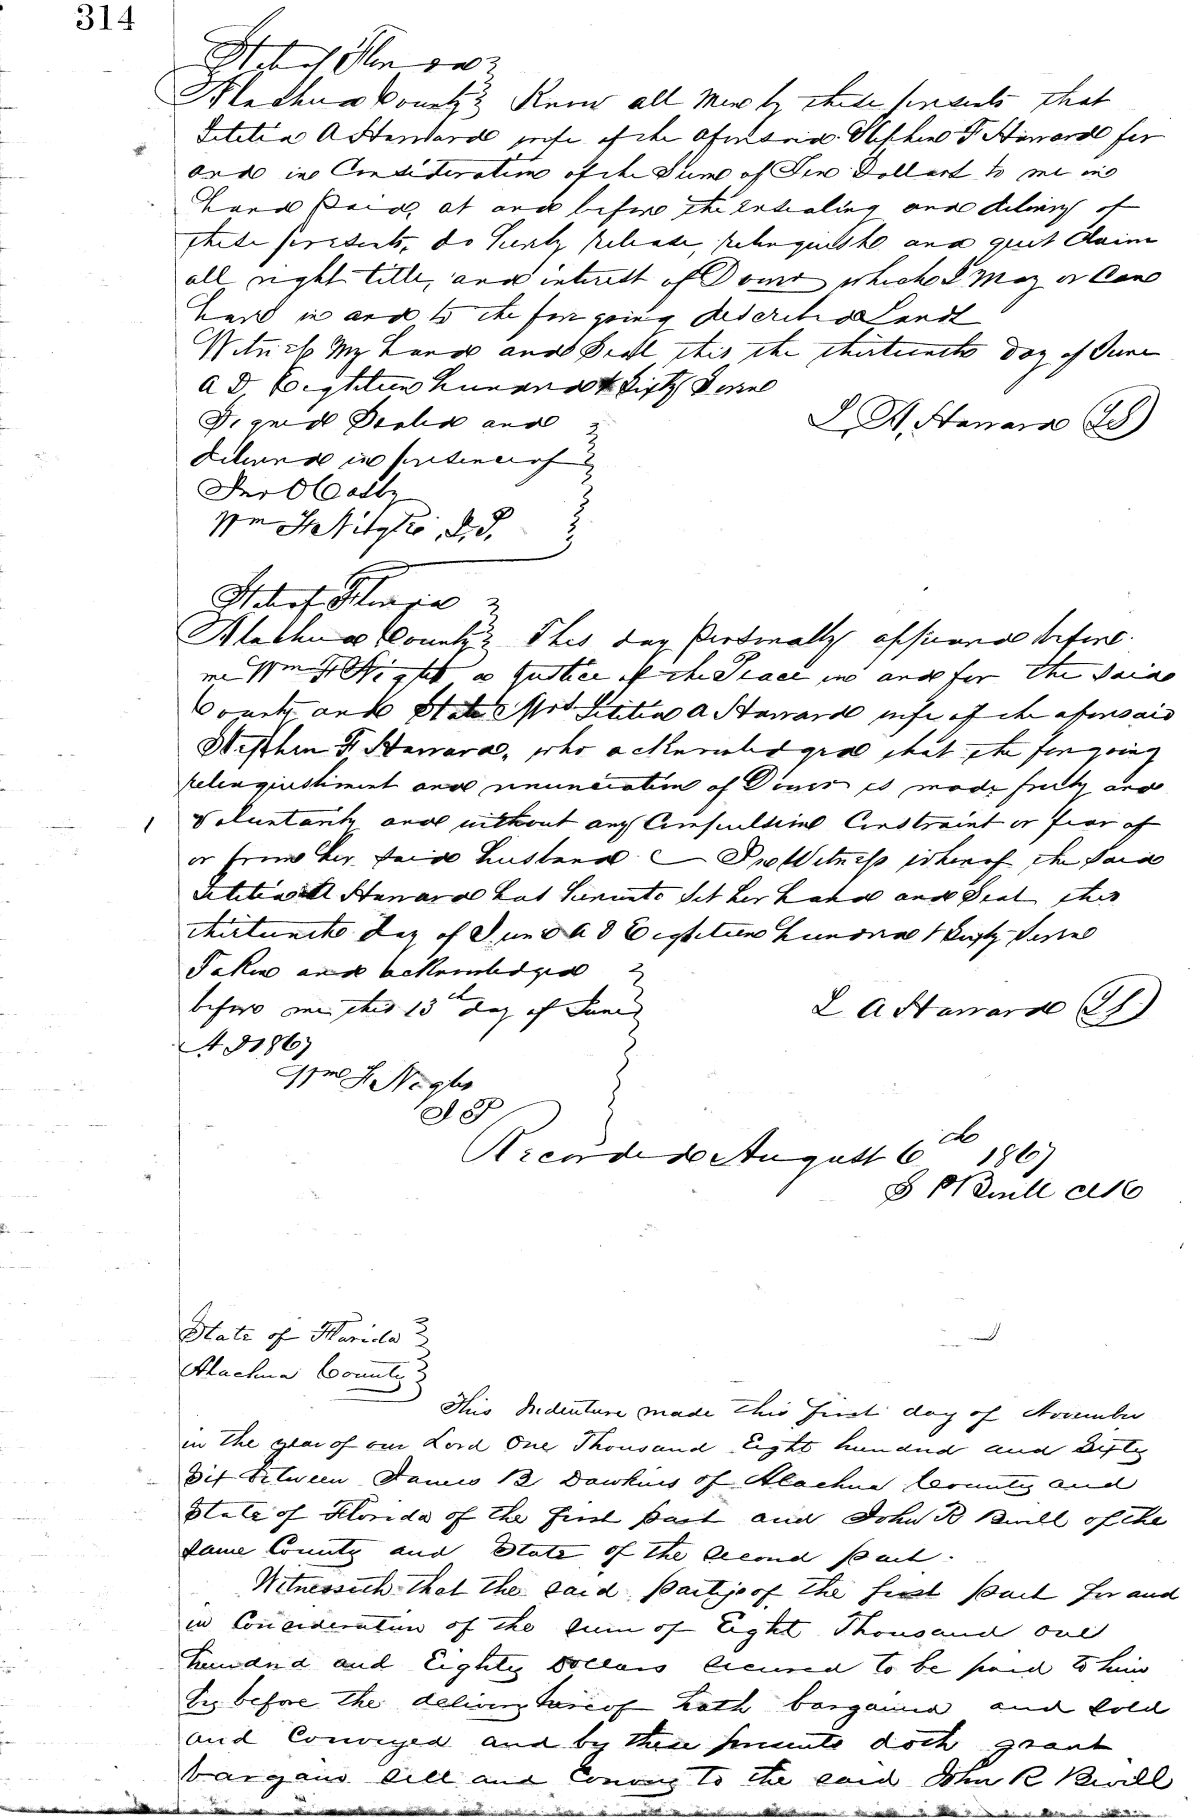 314
State of Florida
Alachua County Know all Men by these presents that
Letetia A Harvard wife of the aforesaid Stephen F Harvard for
and in Consideration of the Sum of Ten Dollars to me in
hand Paid, at and before the ensealing and delivery of
these presents, do hereby release, relinquish and quit Claim
all right title, and interest of Dower which I May or Can
have in and to the foregoing described Lands
Witness My hand and Seal this the thirteenth day of June
A D, Eighteen hundred & Sixty Seven
Signed Sealed and
L, A, Harvard (LS)
delivered in presence of
Jno O Casby
Wm H J.P.
State of Florida
Alachua County This day Personally appeared before
me Wm H a Justice of the Peace in and for the said
County and State Mrs Letetia A Harvard wife of the aforesaid
Stephen F Harvard, who acknowledged that the foregoing
relinquishment and renunciation of Dower is made freely and
voluntarily and without any Compulsion Constraint or fear of
or from her said husband In Witness whereof the Said
Letetia A Harvard has hereunto Set her hand and Seal this
thirteenth day of June A D Eighteen hundred & Sixty Seven
Taken and acknowledged
before me this 13th day of June
L A Harvard (LS)
A D 1867
Wm H
J P
Recorded August 6th 1867
S P Bevill Clk
State of Florida
Alachua County
This Indenture made this first day of November
in the year of our Lord One Thousand Eight hundred and Sixty
Six between James B Dawkins of Alachua County and
State of Florida of the first part and John R Bevill of the
same County and State of the second part.
Witnesseth that the said party of the first part for and
in Consideration of the sum of Eight Thousand one
hundred and Eighty Dollars secured to be paid to him
by before the delivery hereof hath bargained and sold
and Conveyed and by these presents doth grant
bargain sell and Convey to the said John R Bevill